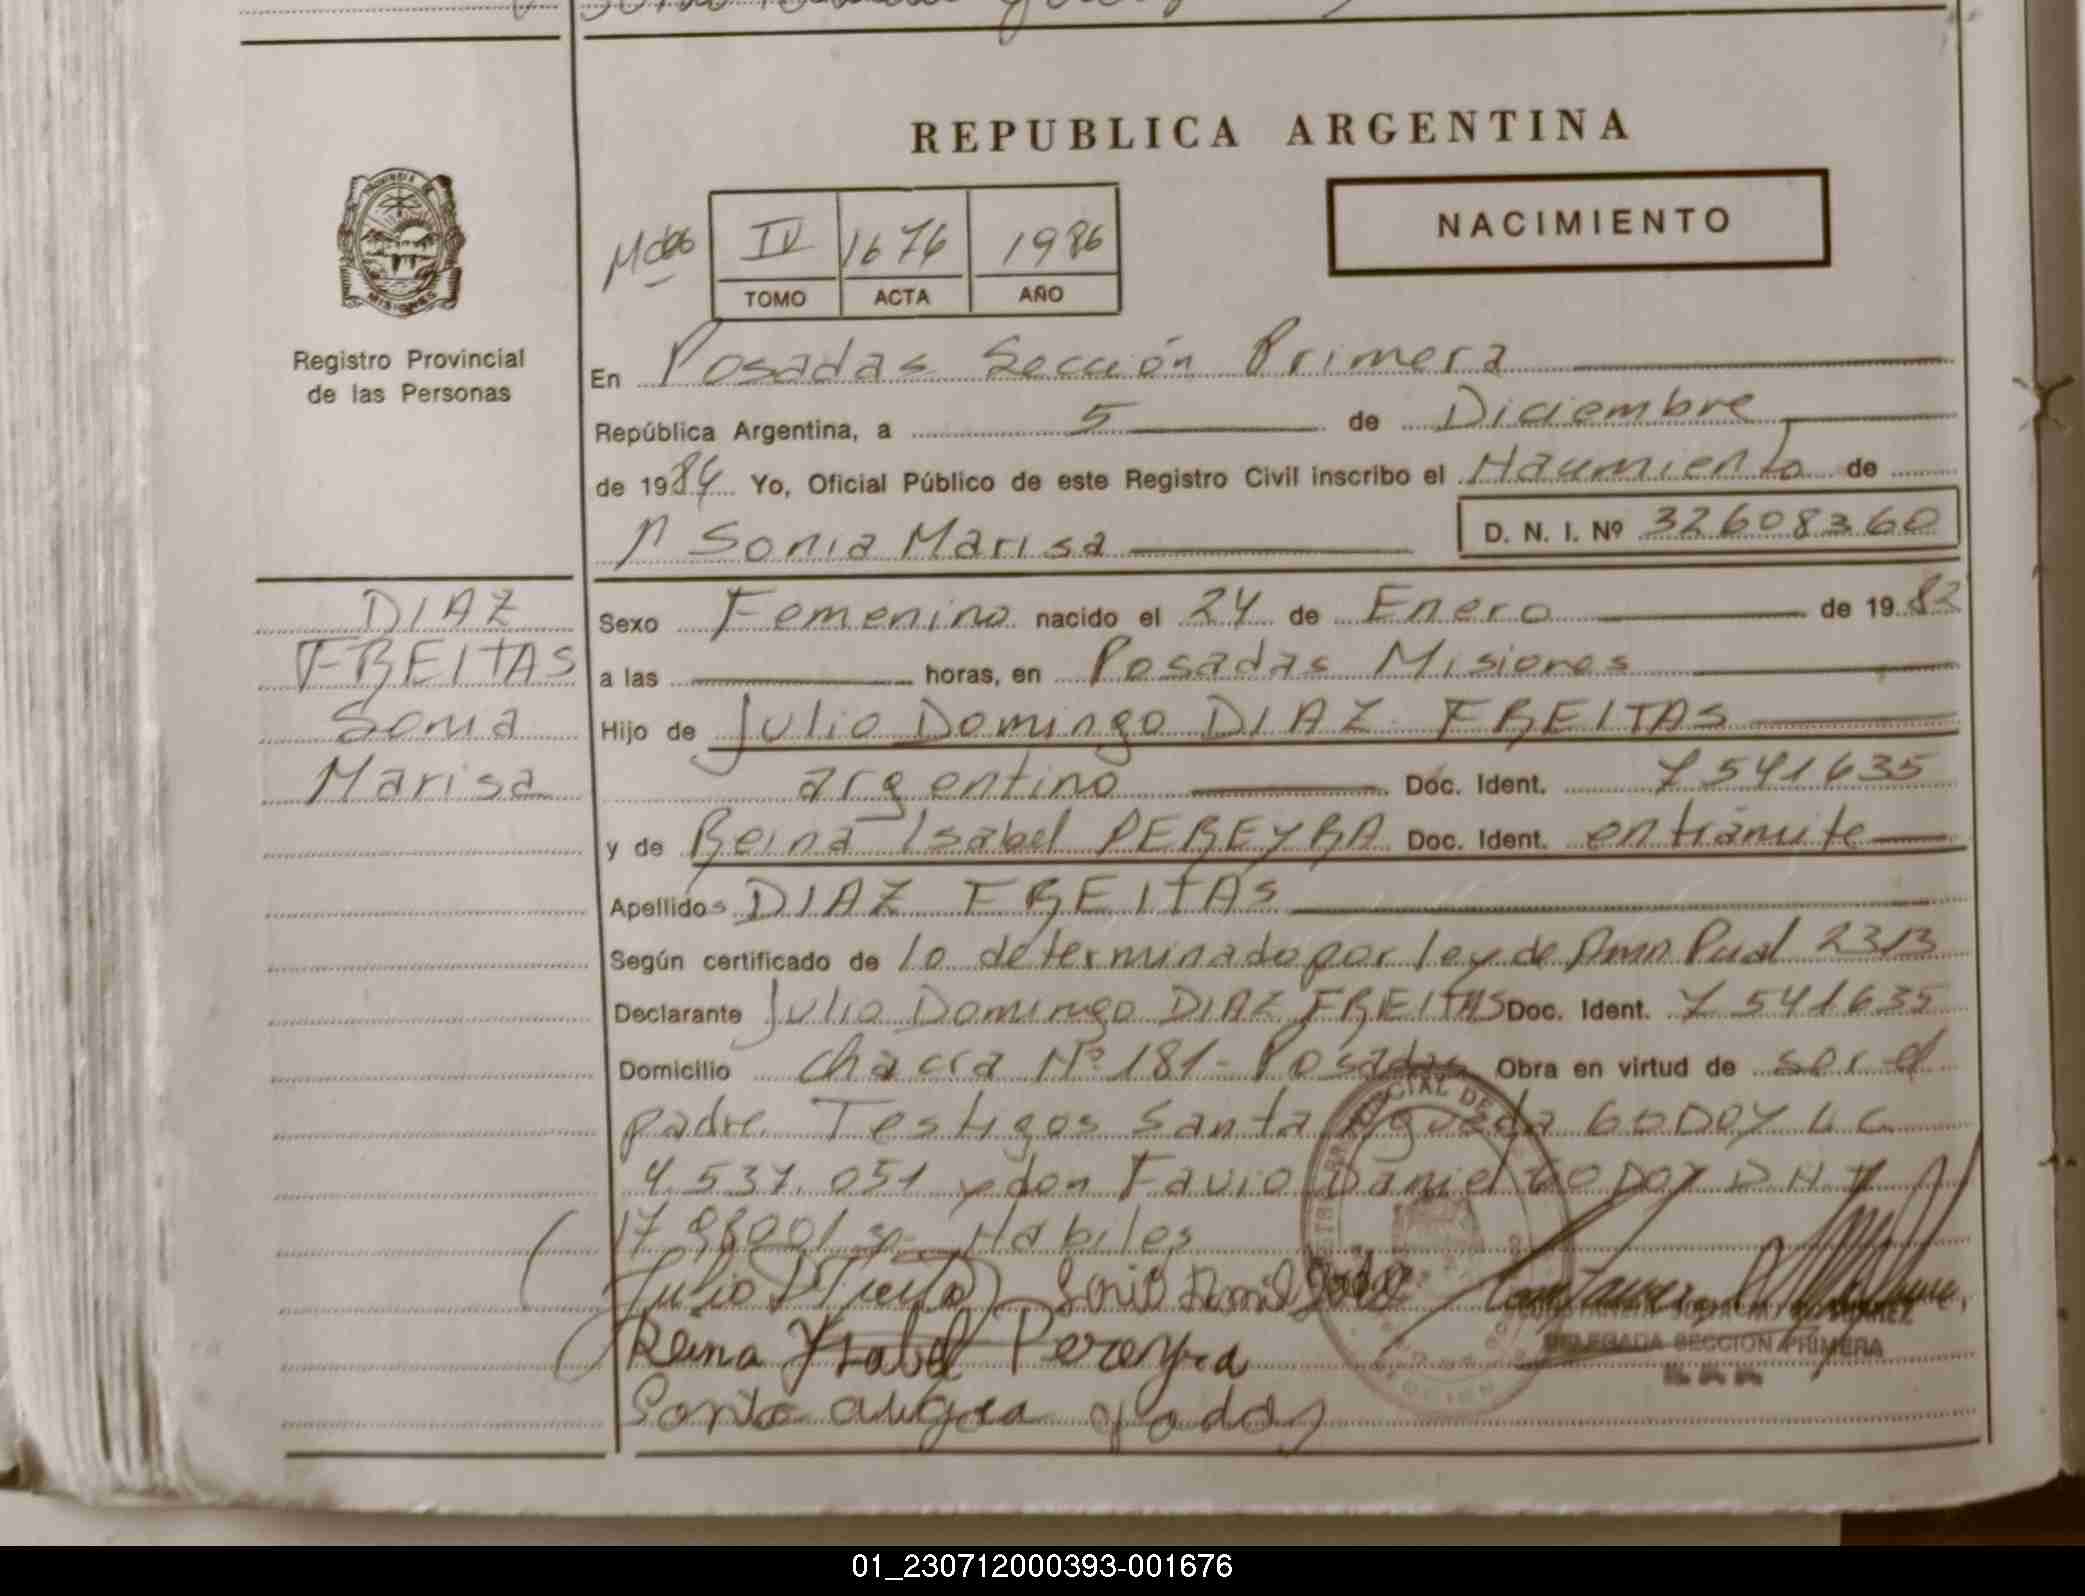 REPUBLICA ARGENTINA
NACIMIENTO
IV 1676 1986
TOMO ACTA AÑO
Registro Provincial
de las Personas
En Posadas Sección Primera
República Argentina, a 5 de Diciembre
de 1984 Yo, Oficial Público de este Registro Civil inscribo el Nacimiento de
Sonia Marisa D. N. I. Nº 32608360
DIAZ
FREITAS
Sonia
Marisa
Sexo Femenino nacido el 24 de Enero de 19
a las horas, en Posadas Misiones
Hijo de Julio Domingo DIAZ FREITAS
argentino Doc. Ident. 7541635
y de Reina Isabel PEREYRA Doc. Ident. en trámite
Apellidos DIAZ FREITAS
Según certificado de lo determinado por ley de 2313
Declarante Julio Domingo DIAZ FREITAS Doc. Ident. 7541635
Domicilio Chacra Nº 181- Posadas Obra en virtud de ser el
padre. Testigos Santa Agueda GODOY L C
4.537.051 y don Favio Daniel GODOY D N I
Habiles
Reina Ysabel Pereyra
DELEGADA SECCION PRIMERA
01_230712000393-001676